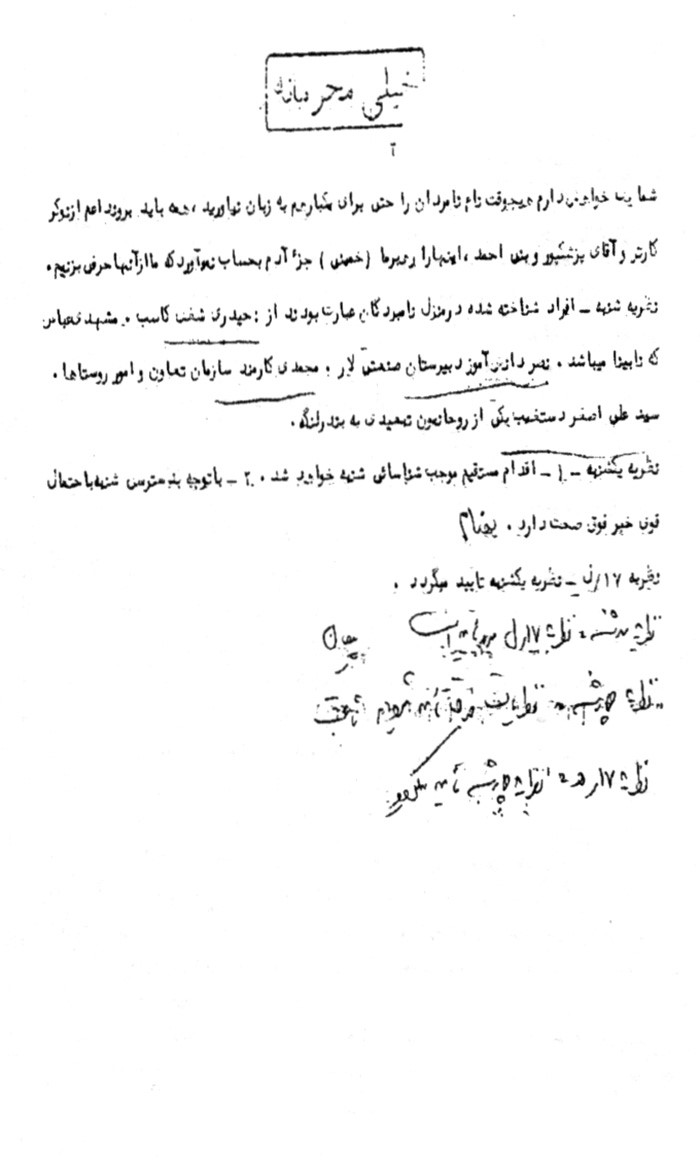 خیلی محرمانه
۲
شما یک خواهش دارم هیچوقت نام نامردان را حتی برای یکبارهم به زبان نیاورید ، همه باید بروند اعم از نوکر
کارتر و آقای پزشکپور و بنی احمد ، اینهارا رهبرما (خمینی) جزء آدم بحساب نمی‌آورد که ما از آنها حرف بزنیم .
نظریه شنبه ــ افراد شناخته شده در منزل نامبردگان عبارت بودند از : حیدری شغل کاسب . مشهدی عباس
که نابینا میباشد . نصر دانش آموز دبیرستان صنعتی لار ، محمدی کارمند سازمان تعاون و امور روستاها .
سید علی اصغر دستغیب یکی از روحانیون تبعیدی به بندرلنگه .
نظریه یکشنبه ــ ۱ ــ اقدام مستقیم موجب شناسائی شنبه خواهد شد . ۲ ــ باتوجه بدسترسی شنبه باحتمال
قوی خبر فوق صحت دارد .
نظریه ۱۷/ل ــ نظریه یکشنبه تایید میگردد .
نظریه سه‌شنبه : نظریه ۱۷/ل مورد تایید است
نظریه چهارشنبه
نظریه ۱۷/ه‍ : نظریه چهارشنبه تایید میگردد